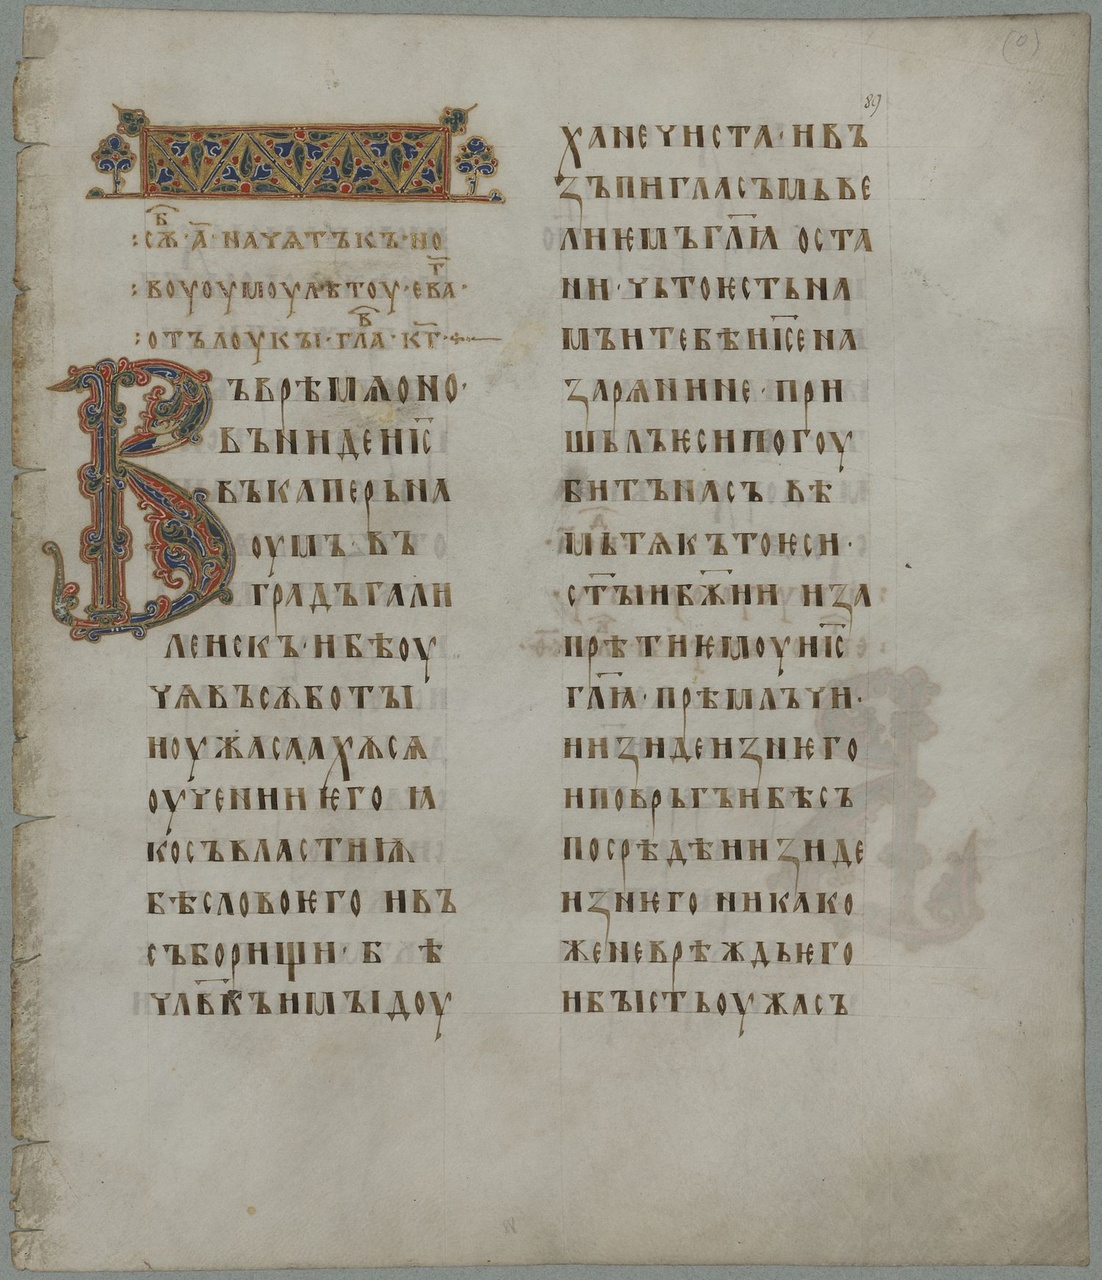 89
:сѫ҃б·а҃·начѧтъкъ·но
:воуоумоулѣтоу·ева҃т·
:отълоукꙑ·гла҃в·кг҃·
Въврѣмѧоно·
въниде∙ні҃с
въкаперьна
оумъ·въ
градъгали
леискъ·ибѣоу
чѧвъсѫботꙑ
иоужасаахѫсѧ
оученииѥго ꙗ
косъвластиѭ
бѣсловоѥго ивъ
съборищи·б ѣ
чл҃вкънимꙑідоу
ханечиста·ивъ
зъпигласъмьве
лиѥмъгл҃ꙗ оста
ни·чьтоѥстьна
мъитебѣиі҃сена
зарѧнине·при
шьлъѥсипогоу
битънасъ вѣ
мьтѧкътоѥси·
ст҃ꙑиб҃жии иза
прѣтиѥмоуиі҃с
гл҃ꙗ·прѣмлъчи·
иизидеизнѥго
иповрьгъибѣсъ
посрѣдѣиизиде
изнѥго никако
женеврѣждьѥго
ибꙑстьоужасъ